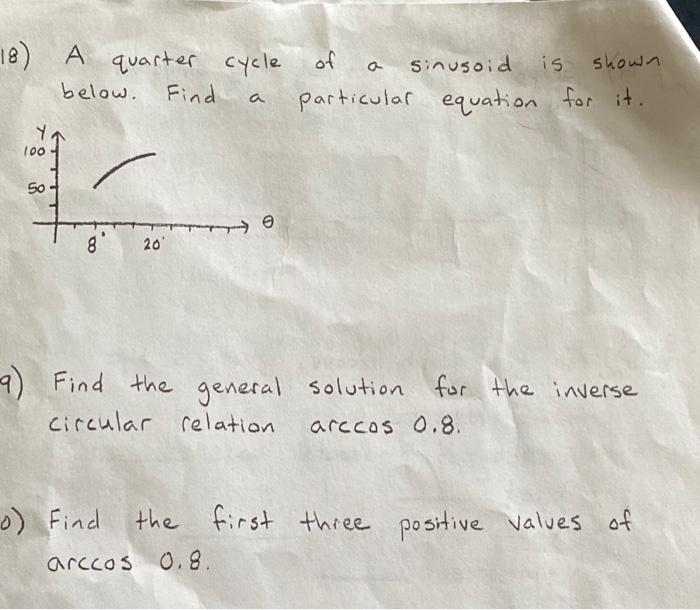 18) A quarter cycle of a sinusoid is shown
below. Find a particular equation for it.
Y
100
50
θ
8° 20°
9) Find the general solution for the inverse
circular relation arccos 0.8.
0) Find the first three positive values of
arccos 0.8.